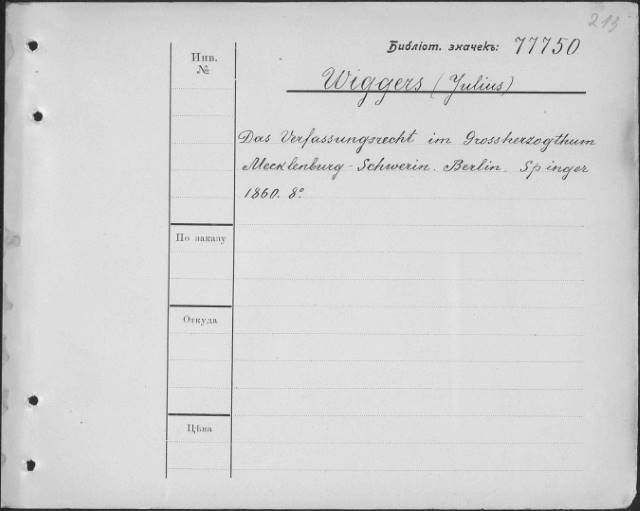 213
Библіот. значекъ: 77750
Инв.
№
Wiggers (Julius)
Das Verfassungsrecht im Grossherzogthum
Mecklenburg-Schwerin. Berlin. Sp inger
1860. 8º
По заказу
Откуда
Цѣна